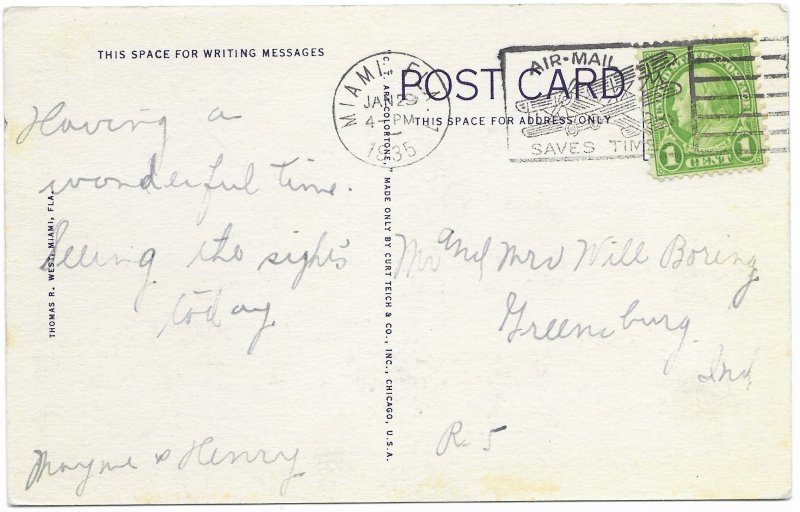 THIS SPACE FOR WRITING MESSAGES
Having a
wonderful time.
Seeing the sights
today
Mayme & Henry
THOMAS R. WEST, MIAMI, FLA.
"C. T. ART-COLORTONE," MADE ONLY BY CURT TEICH & CO., INC., CHICAGO, U.S.A.
POST CARD
THIS SPACE FOR ADDRESS ONLY
MIAMI, FLA.
JAN 29
4 PM
1935
AIR-MAIL
SAVES TIME
1 CENT 1
Mr and Mrs Will Boring
Greensburg
Ind
R. 5